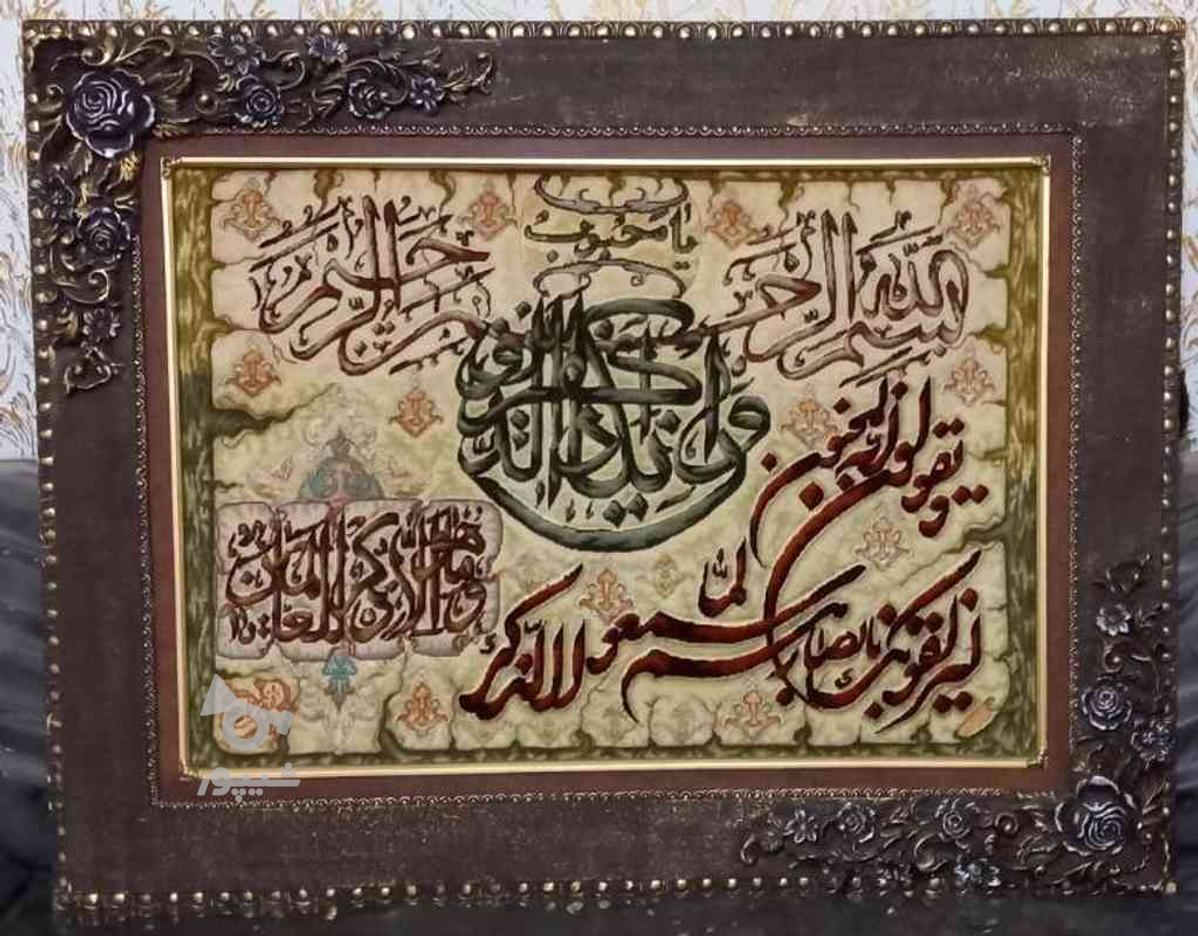 یا محبوب
بسم الله الرحمن الرحیم
وان یکاد الذین کفروا
لیزلقونک بابصارهم لما سمعوا الذکر
و یقولون انه لمجنون
وما هو الا ذکر للعالمین
شیپور